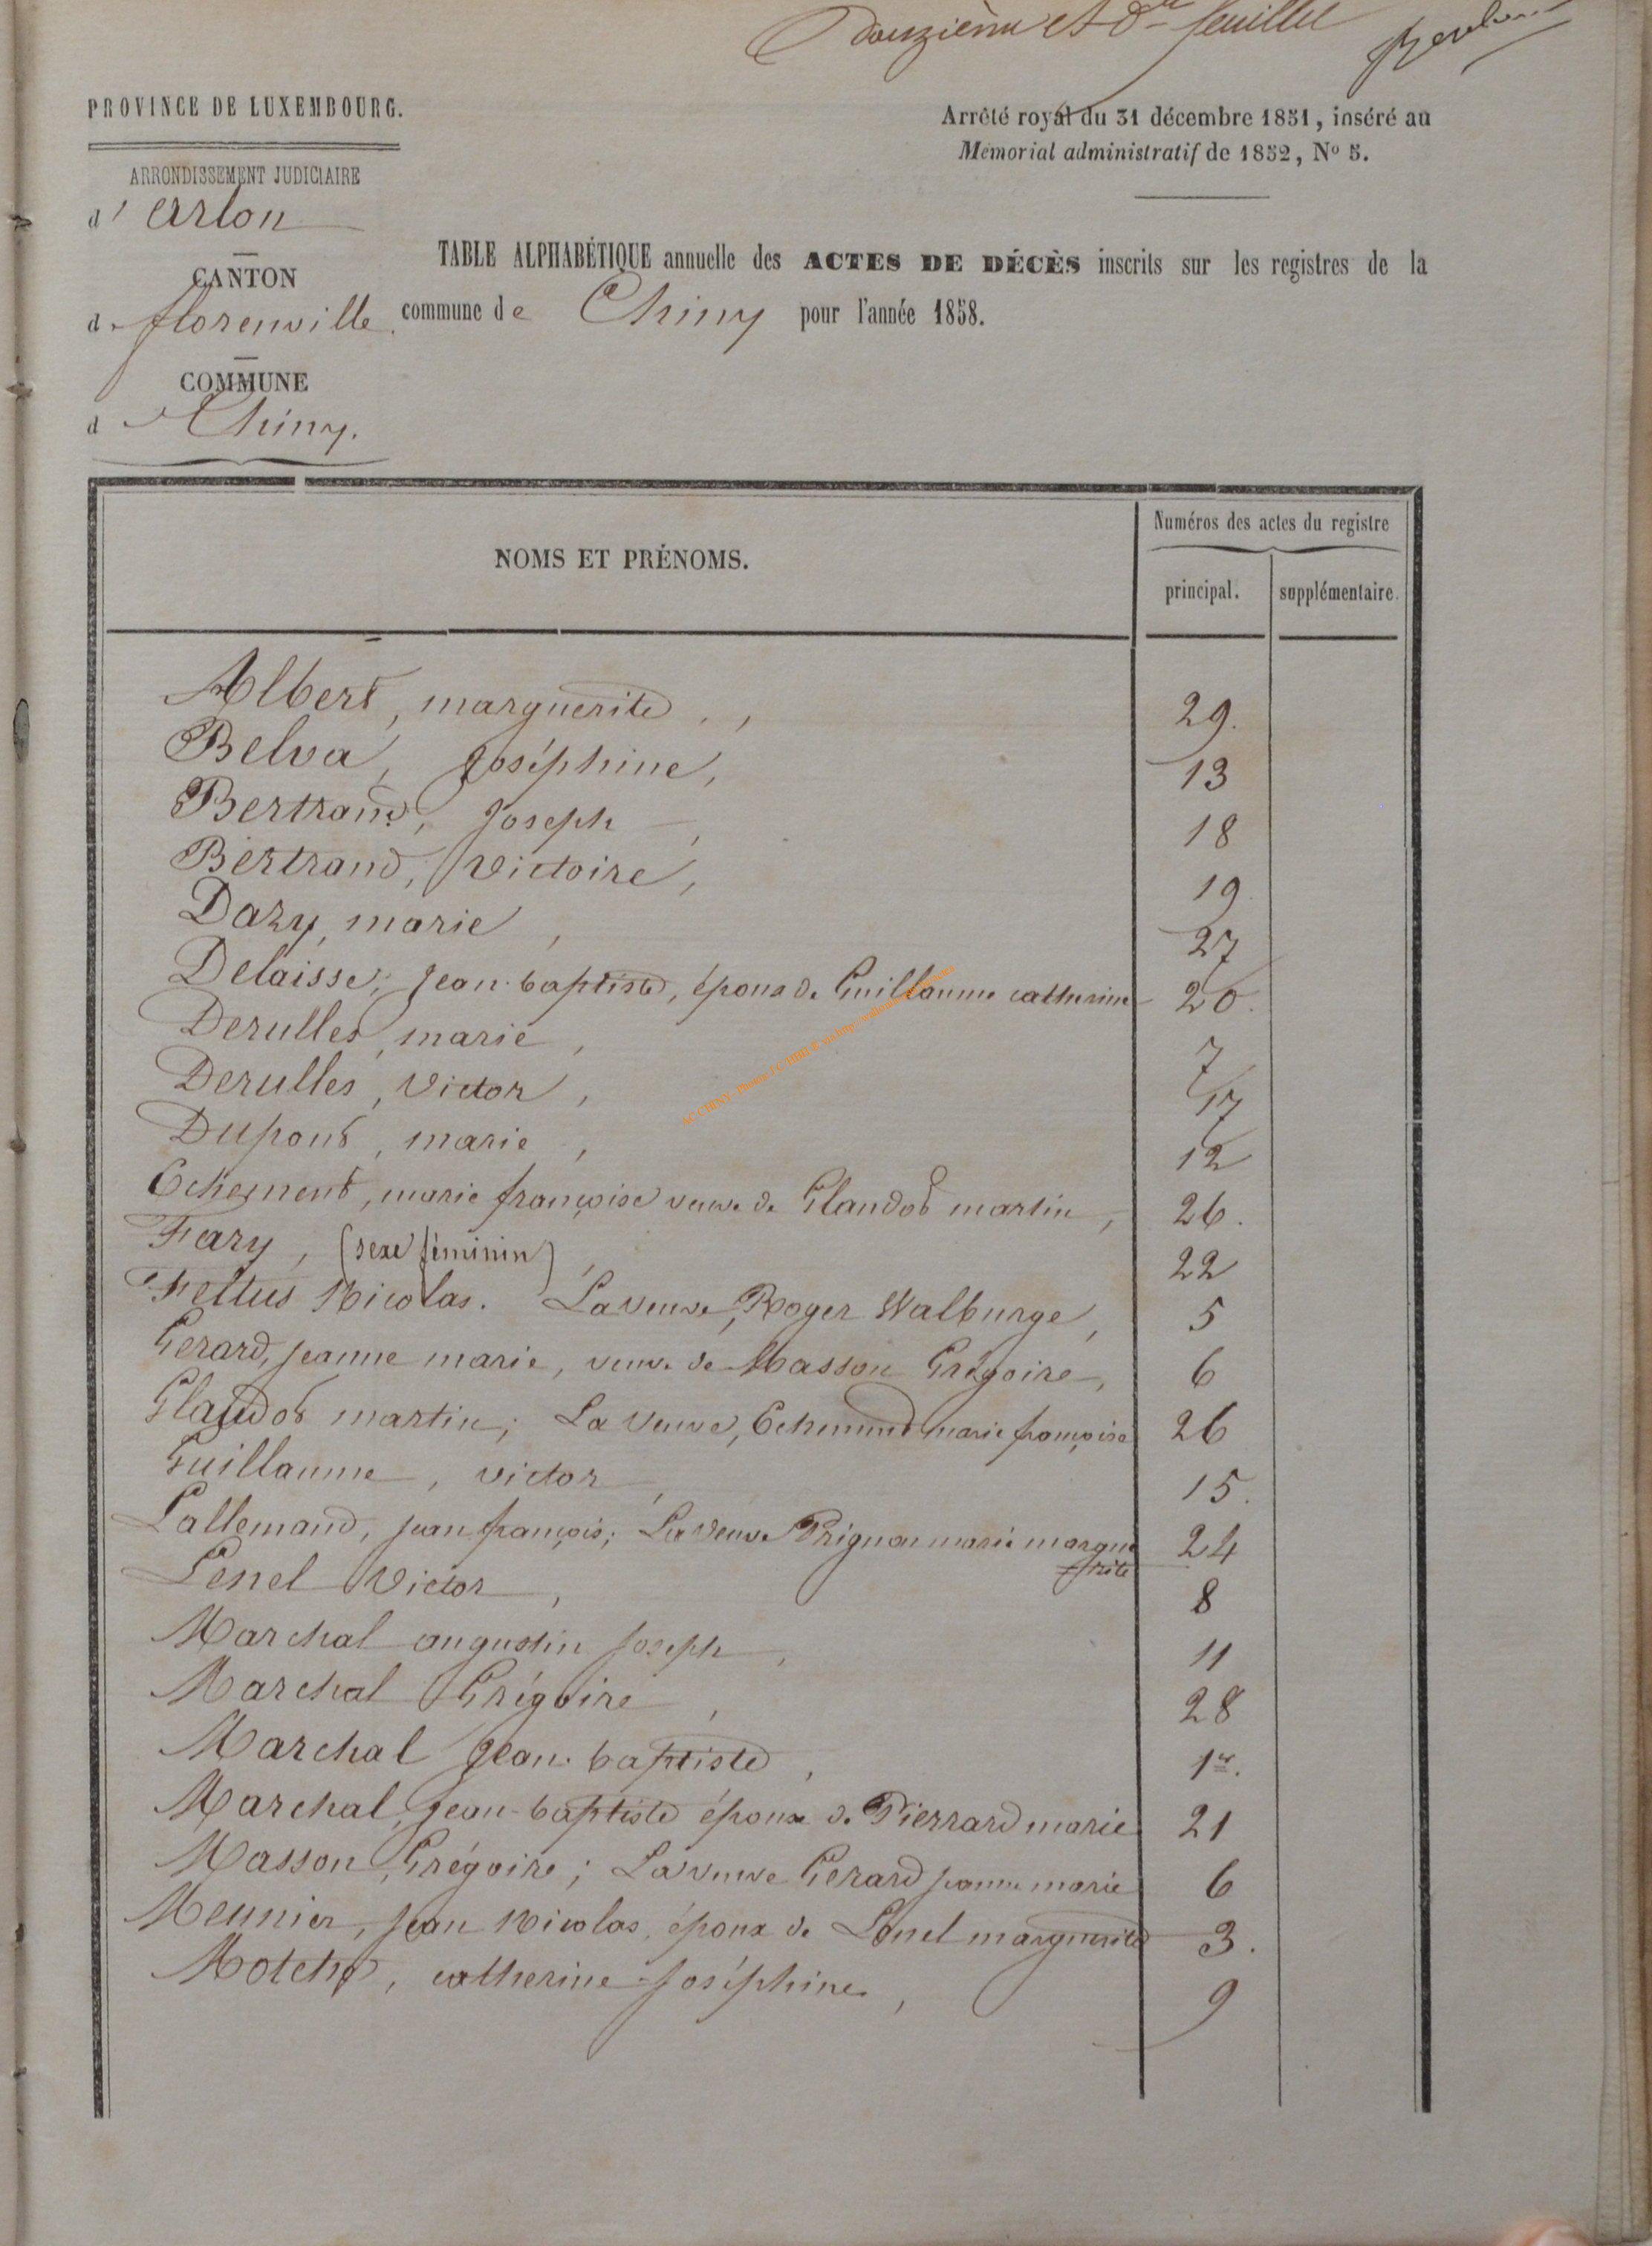 Douzième et d<sup>re</sup> feuillet
PROVINCE DE LUXEMBOURG.
Arrêté royal du 31 décembre 1851, inséré au
Mémorial administratif de 1852, Nº 5.
ARRONDISSEMENT JUDICIAIRE
d'Arlon
CANTON
de florenville.
COMMUNE
de Chiny.
TABLE ALPHABÉTIQUE annuelle des ACTES DE DÉCÈS inscrits sur les registres de la
commune de Chiny pour l'année 1858.
NOMS ET PRÉNOMS.
Numéros des actes du registre
principal. supplémentaire.
Albert, marguerite, 29.
Belva, Joséphine, 13
Bertrand, Joseph, 18
Bertrand, Victoire, 19
Dazy, marie, 27
Delaisse, Jean-baptiste, époux de Guillaume catherine 20.
Derulles, marie, 7
Derulles, Victor, 17
Dupont, marie, 12
Echement, marie françoise veuve de Glandot martin, 26.
Fary, (sexe féminin), 22
Feltus Nicolas. La veuve, Roger Walburge, 5
Gerard, jeanne marie, veuve de Masson Grégoire, 6
Glaudot martin; La veuve, Echement marie françoise 26
Guillaume, victor, 15.
Lallemand, jean françois; La veuve Prignon marie margue
=rite 24
Lenel Victor, 8
Marchal augustin Joseph, 11
Marchal Grégoire, 28
Marchal Jean-baptiste, 1er.
Marchal, Jean-baptiste époux de Pierrard marie 21
Masson Grégoire; La veuve Gerard jeanne marie 6
Meunier, Jean Nicolas, époux de Lenel marguerite 3.
Motch, catherine Joséphine, 9